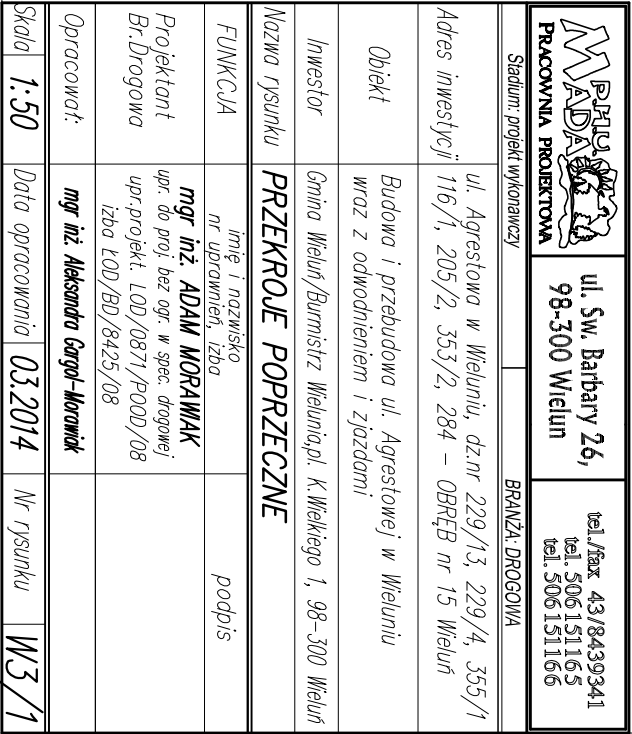 P.H.U.
MADA
PRACOWNIA PROJEKTOWA
ul. Św. Barbary 26,
98-300 Wieluń
tel./fax 43/8439341
tel. 506151165
tel. 506151166
Stadium: projekt wykonawczy
BRANŻA: DROGOWA
Adres inwestycji
ul. Agrestowa w Wieluniu, dz.nr 229/13, 229/4, 355/1
116/1, 205/2, 353/2, 284 – OBRĘB nr 15 Wieluń
Obiekt
Budowa i przebudowa ul. Agrestowej w Wieluniu
wraz z odwodnieniem i zjazdami
Inwestor
Gmina Wieluń/Burmistrz Wielunia,pl. K.Wielkiego 1, 98-300 Wieluń
Nazwa rysunku
PRZEKROJE POPRZECZNE
FUNKCJA
imię i nazwisko
nr uprawnień, izba
podpis
Projektant
Br.Drogowa
mgr inż. ADAM MORAWIAK
upr. do proj. bez ogr. w spec. drogowej
upr.projekt. LOD/0871/POOD/08
izba ŁOD/BD/8425/08
Opracował:
mgr inż. Aleksandra Gargol-Morawiak
Skala
1:50
Data opracowania
03.2014
Nr rysunku
W3/1